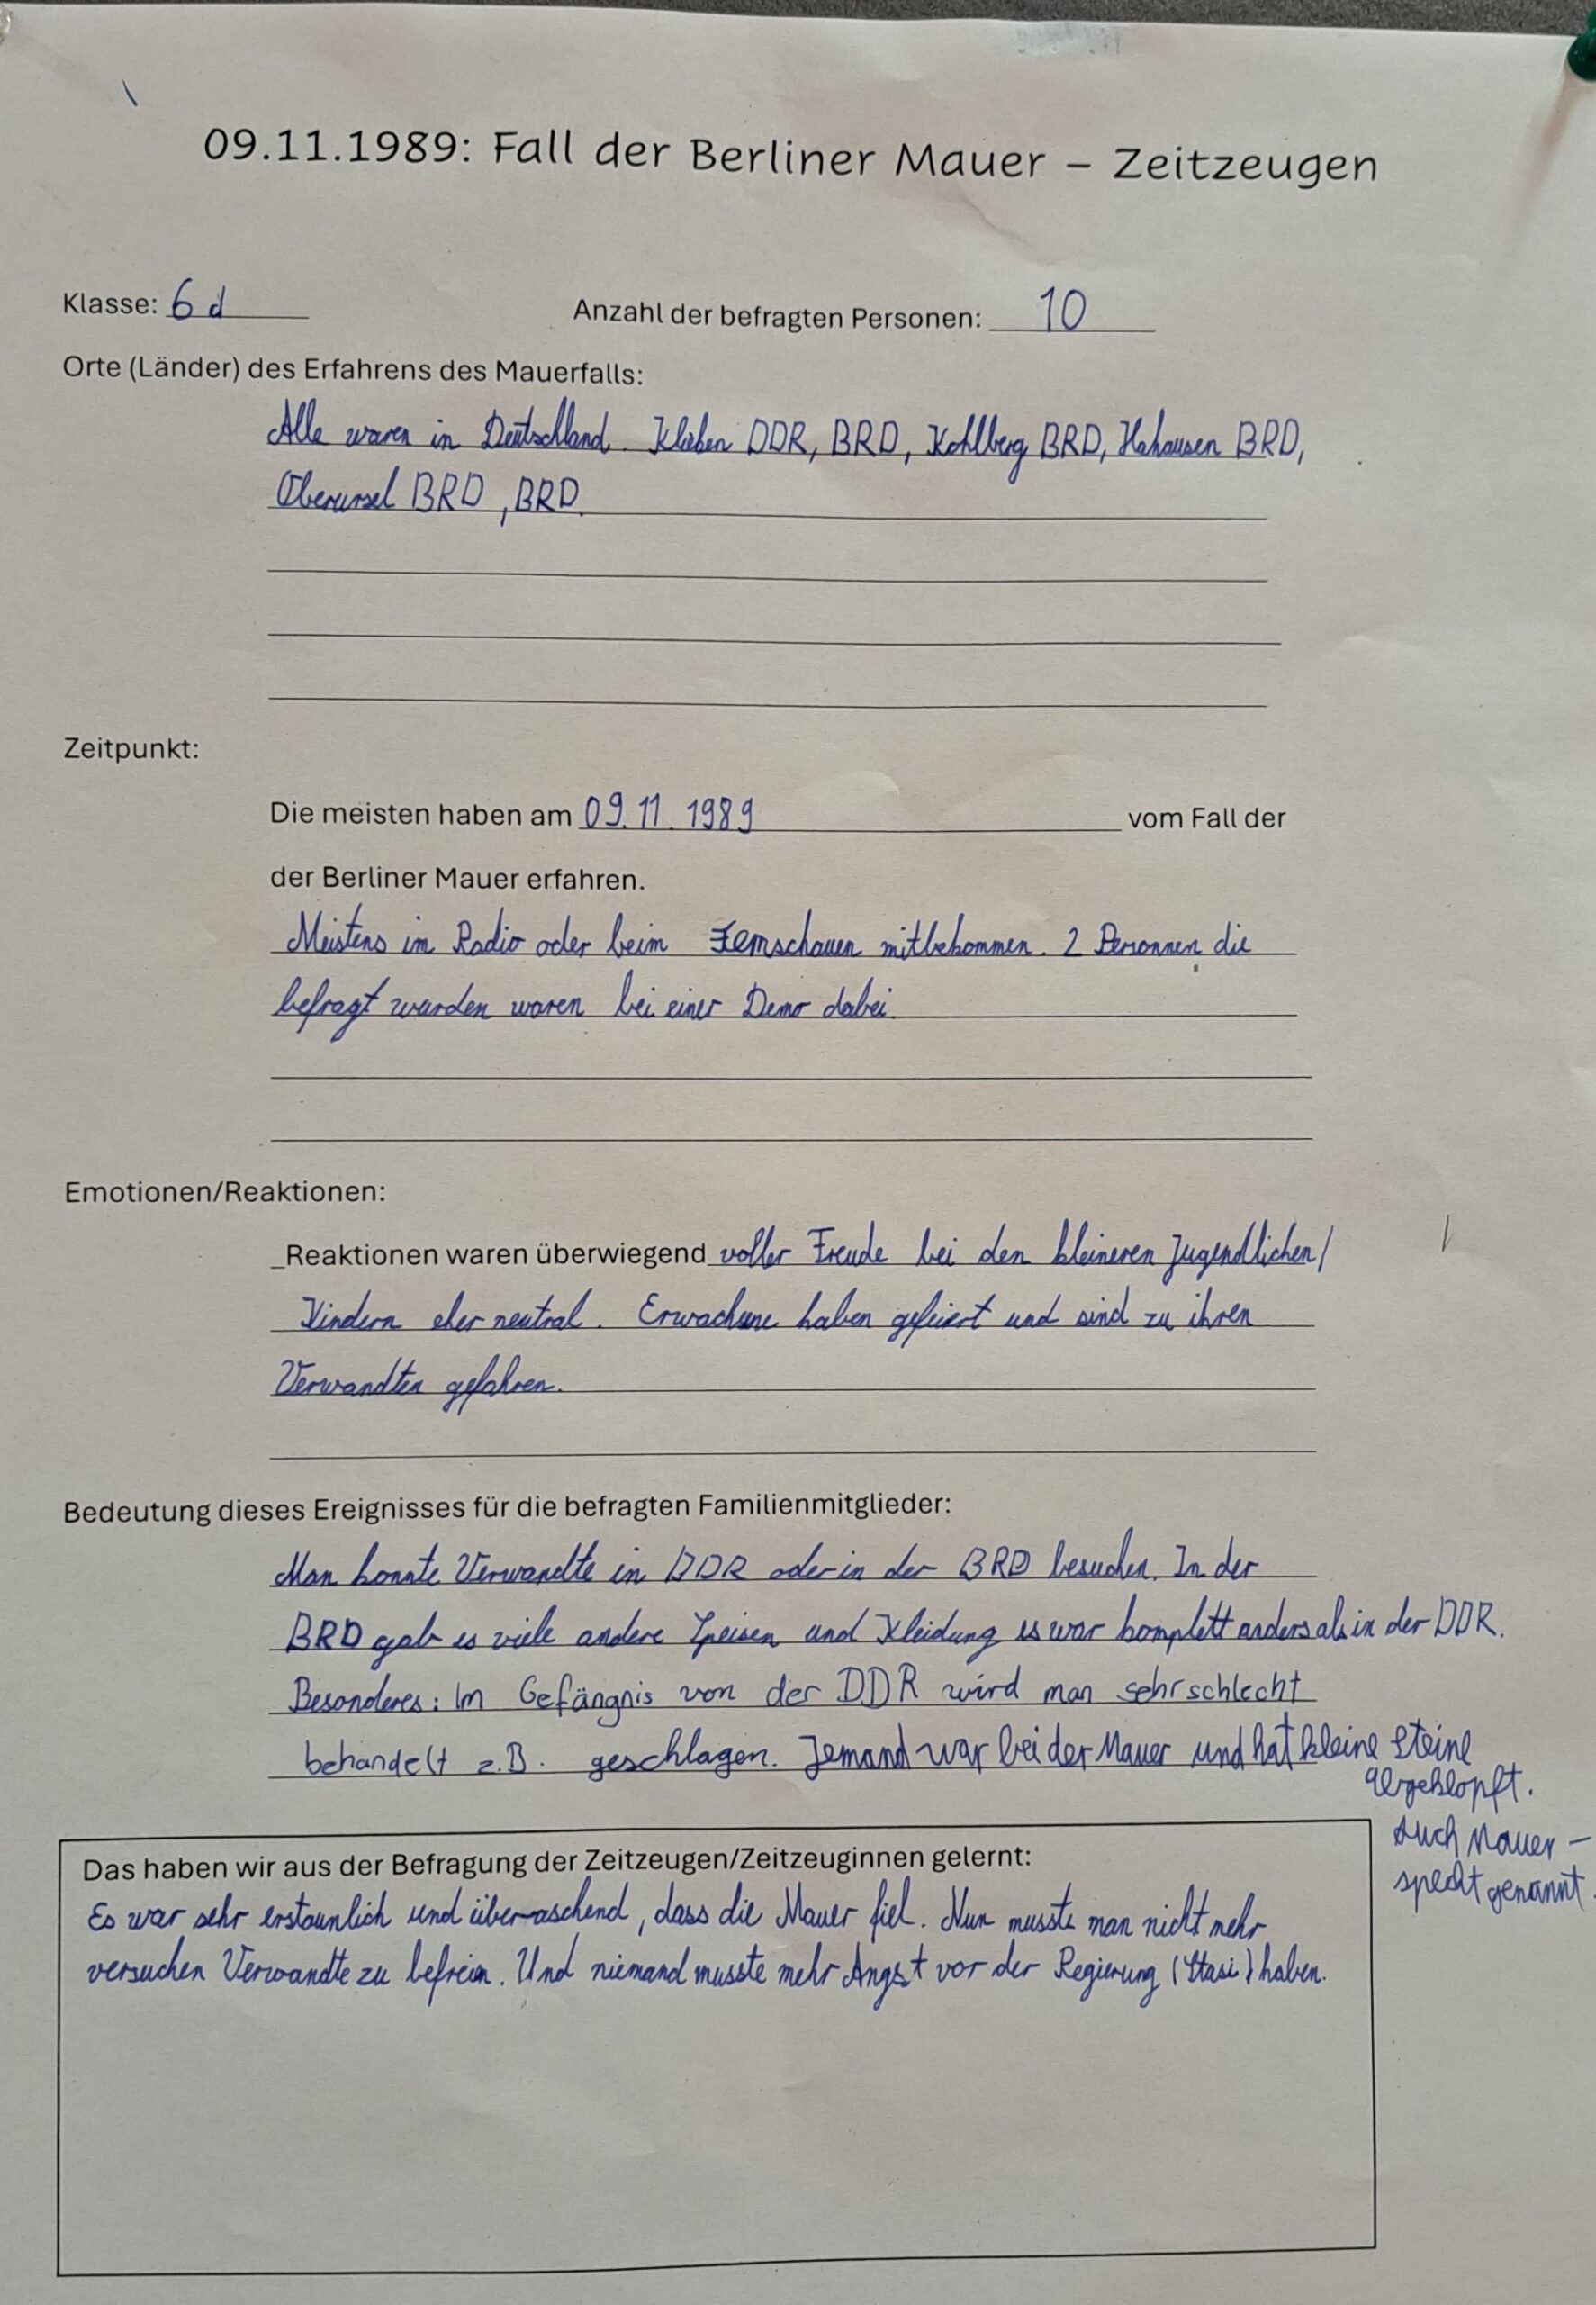 09.11.1989: Fall der Berliner Mauer – Zeitzeugen
Klasse: 6d Anzahl der befragten Personen: 10
Orte (Länder) des Erfahrens des Mauerfalls:
Alle waren in Deutschland. DDR, BRD, Kohlberg BRD, Hahausen BRD,
Oberursel BRD, BRD.
Zeitpunkt:
Die meisten haben am 09.11.1989 vom Fall der
der Berliner Mauer erfahren.
Meistens im Radio oder beim Fernschauen mitbekommen. 2 Personnen die
befragt wurden waren bei einer Demo dabei.
Emotionen/Reaktionen:
_Reaktionen waren überwiegend voller Freude bei den kleineren Jugendlichen/
Kindern eher neutral. Erwachsene haben gefeiert und sind zu ihren
Verwandten gefahren.
Bedeutung dieses Ereignisses für die befragten Familienmitglieder:
Man konnte Verwandte in DDR oder in der BRD besuchen. In der
BRD gab es viele andere Speisen und Kleidung es war komplett anders als in der DDR.
Besonderes: Im Gefängnis von der DDR wird man sehr schlecht
behandelt z.B. geschlagen. Jemand war bei der Mauer und hat kleine Steine
abgeklopft.
Auch Mauer-
specht genannt.
Das haben wir aus der Befragung der Zeitzeugen/Zeitzeuginnen gelernt:
Es war sehr erstaunlich und überraschend, dass die Mauer fiel. Nun musste man nicht mehr
versuchen Verwandte zu befreien. Und niemand musste mehr Angst vor der Regierung (Stasi) haben.